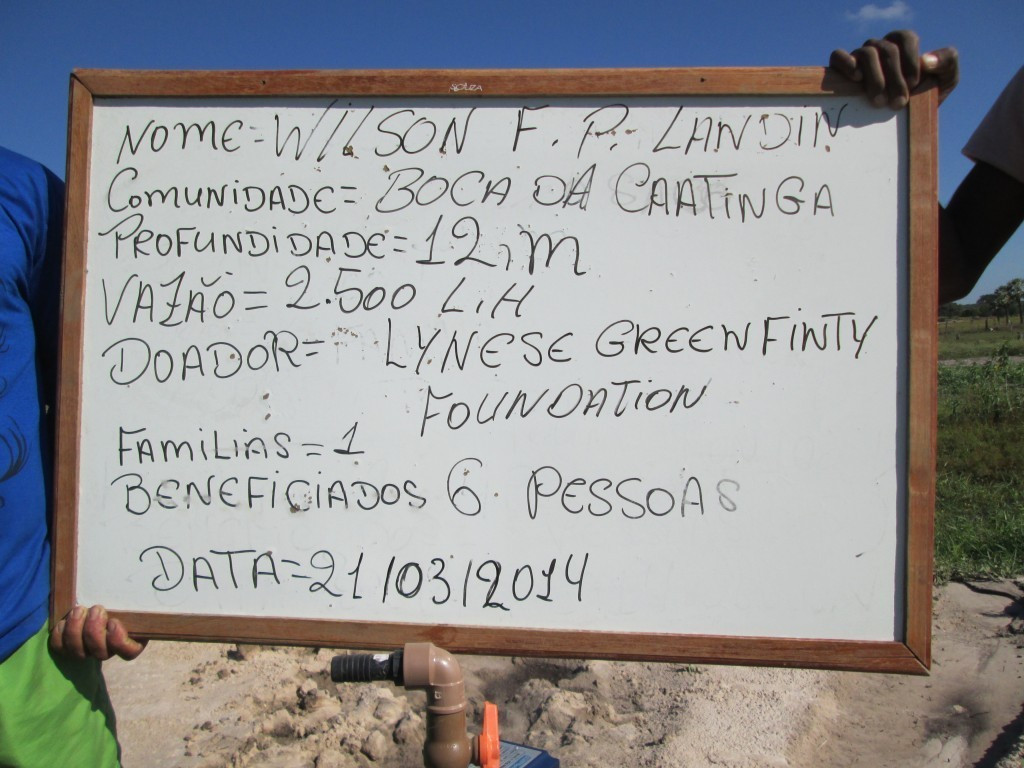 SOUZA
NOME=WILSON F. P. LANDIN
COMUNIDADE= BOCA DA CAATINGA
PROFUNDIDADE=12,m
VAZÃO= 2.500 L.H
DOADOR= LYNESE GREENFINTY
FOUNDATION
FAMILIAS=1
BENEFICIADOS 6. PESSOAS
DATA=21/03/2014